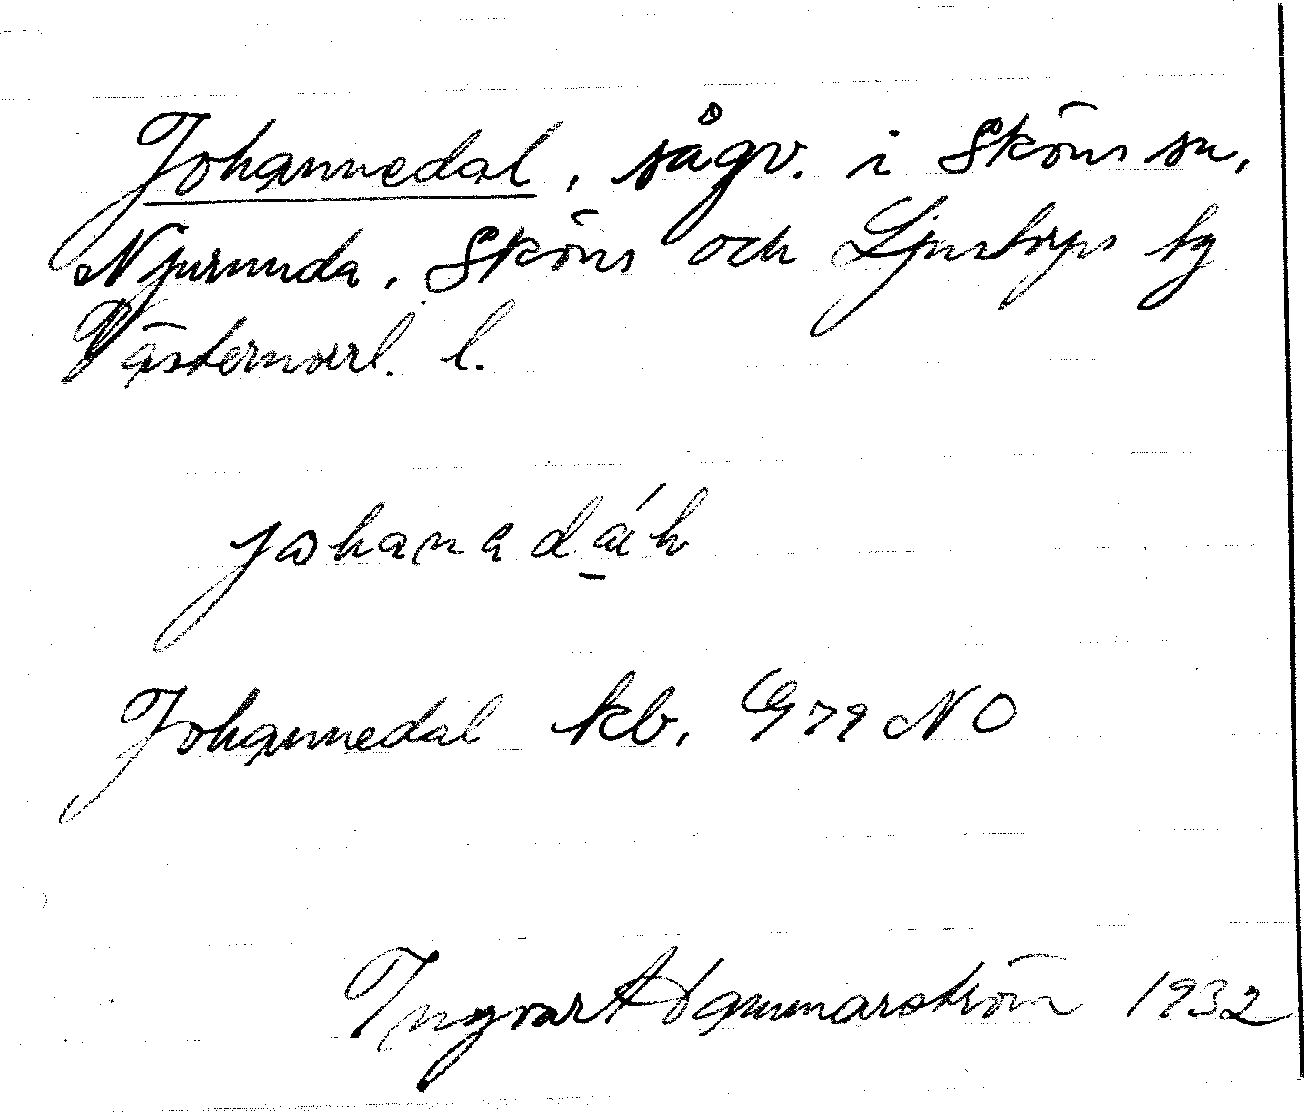 Johannedal, sågv. i Sköns sn,
Njurunda, Sköns och Ljustorps tg
Västernorrl. l.
Johannedal kb, G 79 NO
Ingvar Hammarström 1932